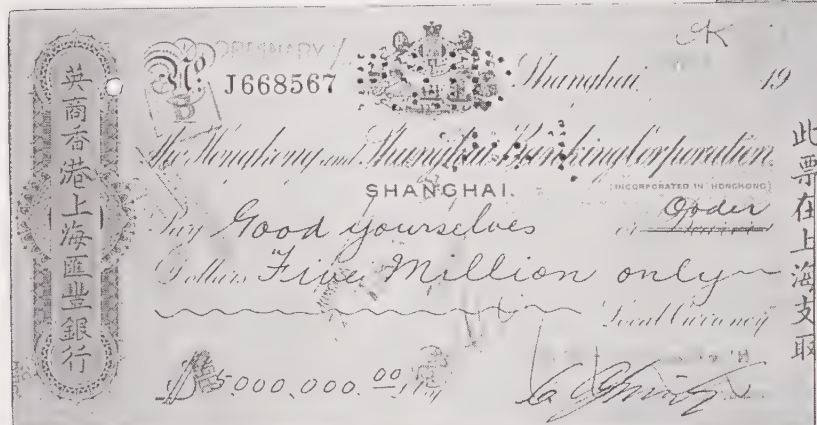 英商香港上海匯豐銀行
ORDINARY
No J668567
Shanghai, 19
The Hongkong and Shanghai Banking Corporation
(INCORPORATED IN HONGKONG)
SHANGHAI.
Pay Good yourselves or Order
Dollars Five Million only
Local Currency
$ 5,000,000.00
此票在上海支取